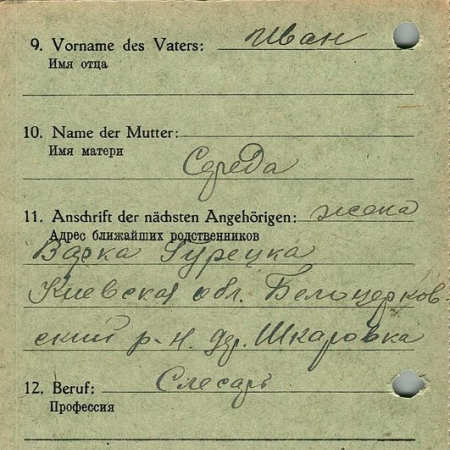 9. Vorname des Vaters: Иван
Имя отца
10. Name der Mutter:
Имя матери
Середа
11. Anschrift der nächsten Angehörigen: жена
Адрес ближайших родственников
Варка Гурецка
Киевская обл. Белоцерков-
ский р-н. дер. Шкаровка
12. Beruf: Слесарь
Профессия